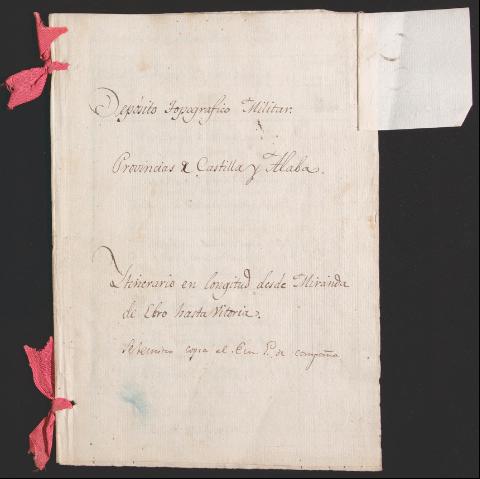 Depósito Topografico Militar.
Provincias de Castilla y Alaba.
Itinerario en longitud desde Miranda
de Ebro hasta Vitoria.
copia al de campaña